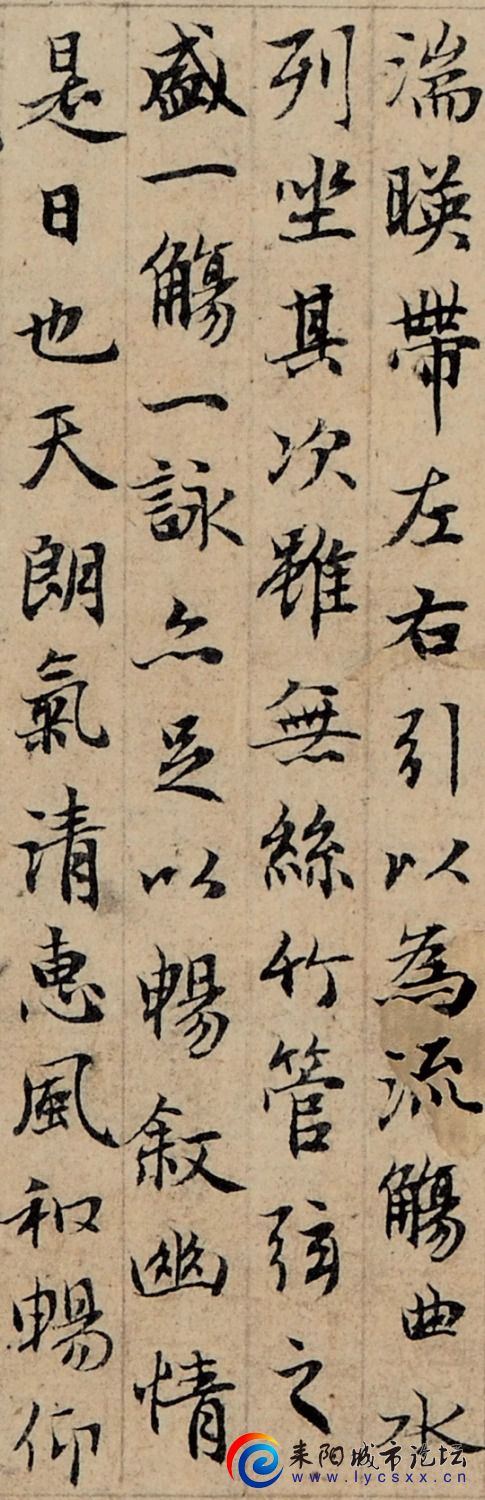 湍暎帶左右引以為流觴曲水
列坐其次雖無絲竹管弦之
盛一觴一詠亦足以暢敘幽情
是日也天朗氣清惠風和暢仰
耒阳城市论坛
www.lycsxx.cn